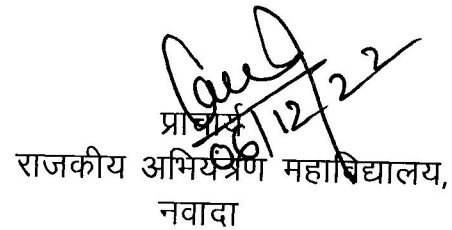 06/12/22
प्राचार्य
राजकीय अभियंत्रण महाविद्यालय,
नवादा